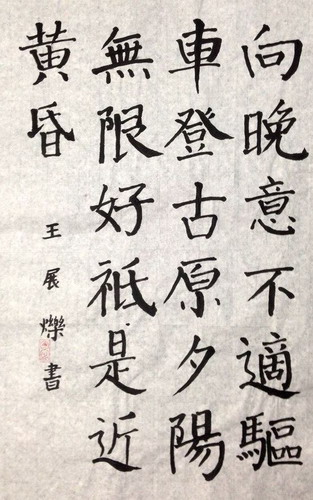 向晚意不適驅
車登古原夕陽
無限好祇是近
黃昏
王展爍書